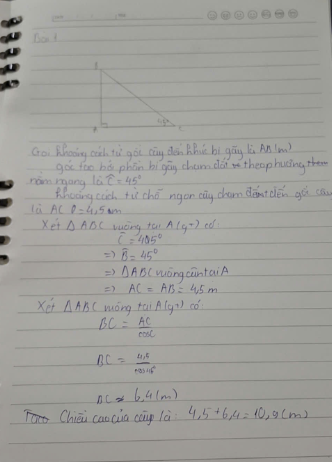 Bài 1
B
A
C
Gọi khoảng cách từ gốc cây đến khúc bị gãy là AB (m)
góc tạo bởi phần bị gãy chạm đất theo phương
nằm ngang là Ĉ = 45°
Khoảng cách từ chỗ ngọn cây chạm đất đến gốc cây
là AC = 4,5 m
Xét △ABC vuông tại A (gt) có
Ĉ = 45°
=> B̂ = 45°
=> △ABC vuông cân tại A
=> AC = AB = 4,5 m
Xét △ABC vuông tại A (gt) có:
BC = AC / cosC
BC = 4,5 / cos45°
BC ≈ 6,4 (m)
Chiều cao của cây là: 4,5 + 6,4 = 10,9 (m)